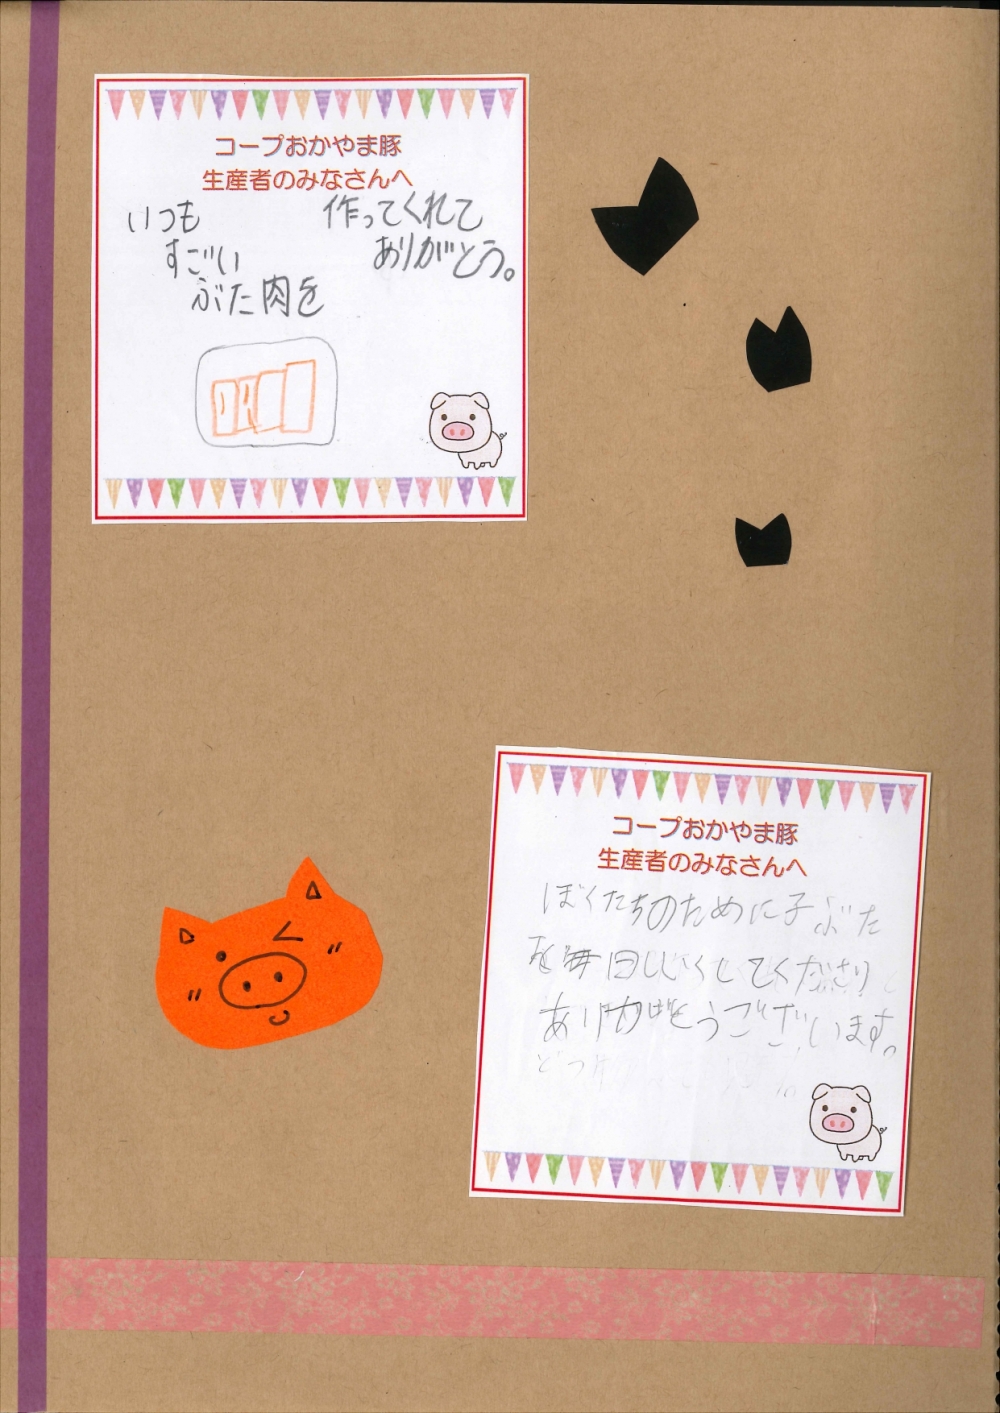 コープおかやま豚
生産者のみなさんへ
いつも
すごい
ぶた肉を
作ってくれて
ありがとう。
コープおかやま豚
生産者のみなさんへ
ぼくたちのために子ぶた
を毎日
くださり
ありがとうございます。